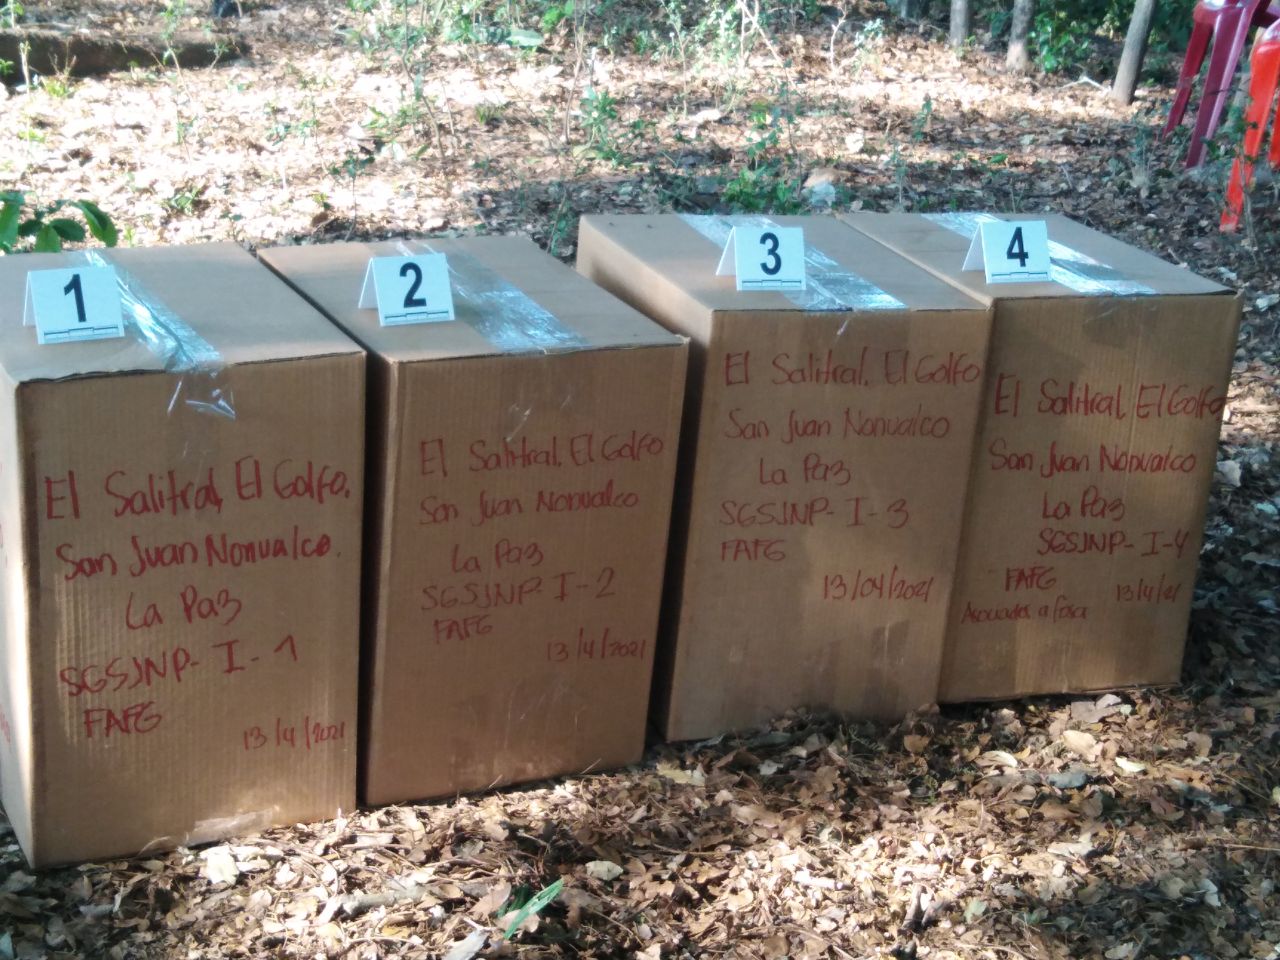 1
El Salitral, El Golfo.
San Juan Nonualco.
La Paz
SGSJNP-I-1
FAFG
13/4/2021
2
El Salitral, El Golfo
San Juan Nonualco
La Paz
SGSJNP-I-2
FAFG
13/4/2021
3
El Salitral, El Golfo
San Juan Nonualco
La Paz
SGSJNP-I-3
FAFG
13/04/2021
4
El Salitral, El Golfo
San Juan Nonualco
La Paz
SGSJNP-I-4
FAFG
13/4/21
Asociados a fosa